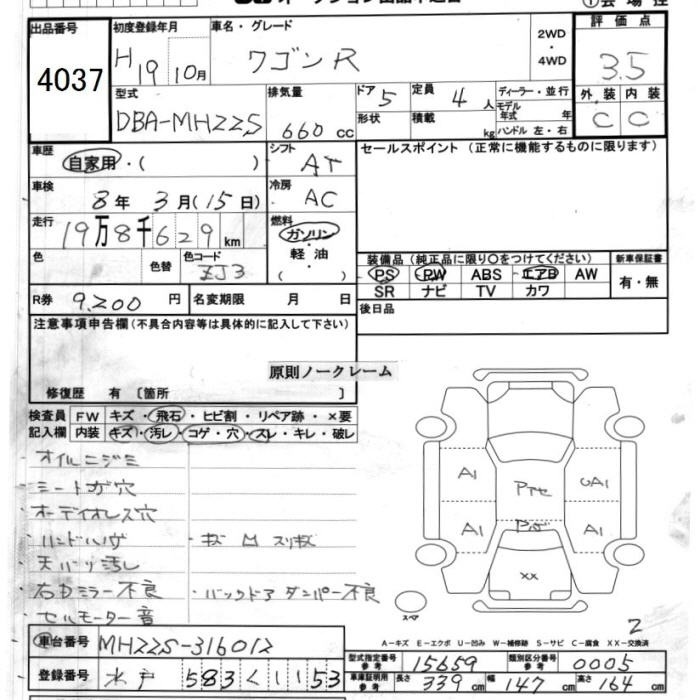 ①会場控
出品番号
4037
初度登録年月
H19 10月
車名・グレード
ワゴンR
2WD・4WD
評価点
3.5
型式
DBA-MH22S
排気量
660cc
ドア 5
形状
定員 4人
積載 kg
ディーラー・並行
モデル年式 年
ハンドル 左・右
外装 内装
C C
車歴
自家用・( )
シフト
AT
セールスポイント (正常に機能するものに限ります)
車検
8年 3月(15日)
冷房
AC
走行
19万8千629km
燃料
ガソリン・軽油
( )
色
色替
色コード
ZJ3
装備品 (純正品に限り○をつけてください)
PS PW ABS エアB AW
SR ナビ TV カワ
新車保証書
有・無
R券 9,200円
名変期限 月 日
後日品
注意事項申告欄(不具合内容等は具体的に記入して下さい)
原則ノークレーム
修復歴 有 [箇所 ]
検査員記入欄
FW キズ・飛石・ヒビ割・リペア跡・×要
内装 キズ・汚レ・コゲ・穴・スレ・キレ・破レ
オイルニジミ
シートコゲ穴
オーディオレス穴
天バリ汚し
右Dミラー不良 ・バックドアダンパー不良
セルモーター音
A1
A1
A1
A1
XX
スペア
2
A-キズ E-エクボ U-凹み W-補修跡 S-サビ C-腐食 XX-交換済
車台番号 MH22S-316012
登録番号 水戸 583 く 1153
型式指定番号 参考 15659
類別区分番号 参考 0005
車庫証明用 参考 長さ 339cm 幅 147cm 高さ 164cm